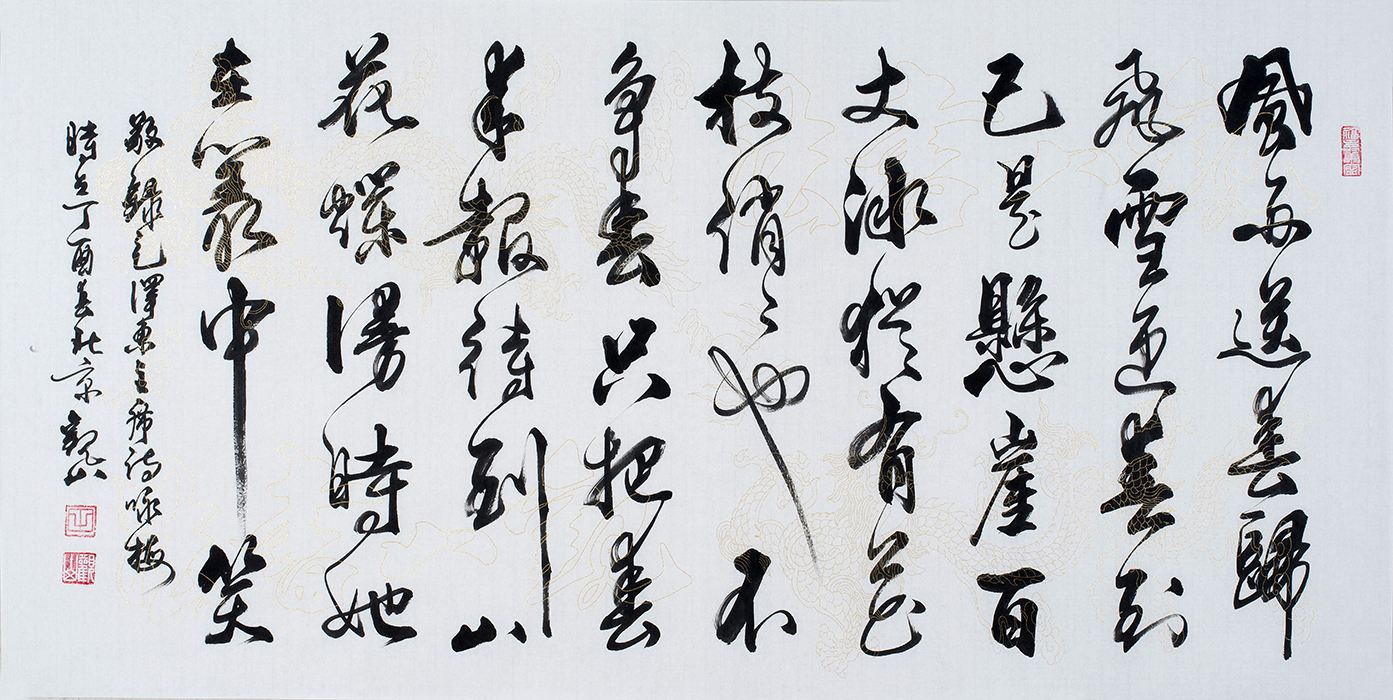 風雨送春歸
飛雪迎春到
已是懸崖百
丈冰猶有花
枝俏〻也不
争春只把春
來報待到山
花爛漫時她
在叢中笑
敬録毛澤東主席詩咏梅
時在丁酉春北京觀山